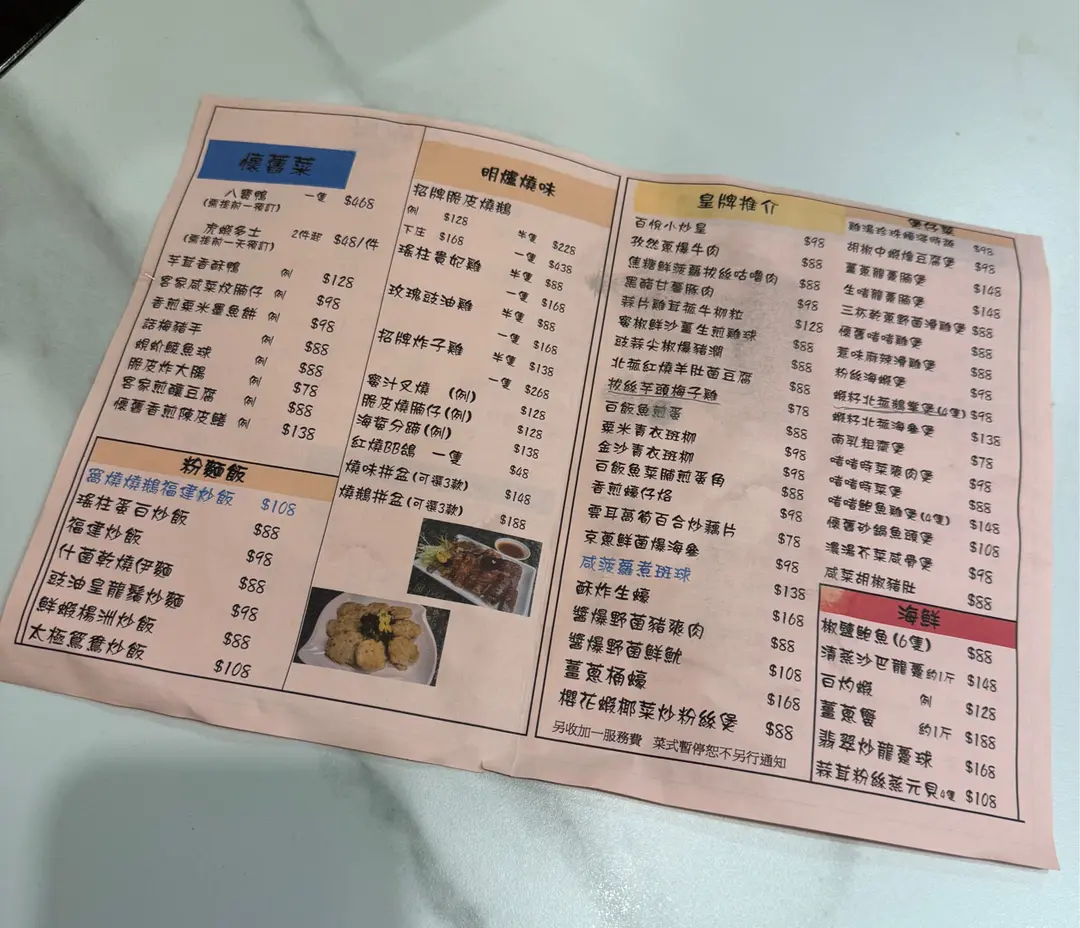 懷舊菜
八寶鴨 一隻 $468
(需提前一天預訂)
虎蝦多士 2件起 $48/件
(需提前一天預訂)
芋茸香酥鴨 例 $128
客家咸菜炆腩仔 例 $98
香煎粟米墨魚餅 例 $98
話梅豬手 $88
蜆蚧鯪魚球 例 $88
脆皮炸大腸 例 $78
客家煎釀豆腐 例 $88
懷舊香煎陳皮鱔 例 $138
粉麵飯
窩燒燒鵝福建炒飯 $108
瑤柱蛋白炒飯 $88
福建炒飯 $98
什菌乾燒伊麵 $88
豉油皇龍鬚炒麵 $98
鮮蝦楊洲炒飯 $88
太極鴛鴦炒飯 $108
明爐燒味
招牌脆皮燒鵝
例 $128 半隻 $228
下庄 $168 一隻 $438
瑤柱貴妃雞 半隻 $88
一隻 $168
玫瑰豉油雞 半隻 $88
一隻 $168
招牌炸子雞 半隻 $138
一隻 $268
蜜汁叉燒 (例) $128
脆皮燒腩仔(例) $128
海蜇分蹄(例) $138
紅燒BB鴿 一隻 $48
燒味拼盆(可選3款) $148
燒鵝拼盆(可選3款) $188
皇牌推介
百悅小炒皇 $98
孜然蔥爆牛肉 $88
焦糖鮮菠蘿拔絲咕嚕肉 $88
黑醋甘薯豚肉 $98
蒜片雞茸菰牛柳粒 $128
蜜椒鮮沙薑生煎雞球 $88
豉蒜尖椒爆豬潤 $88
北菰紅燒羊肚菌豆腐 $88
拔絲芋頭梅子雞 $78
白飯魚煎蛋 $88
粟米青衣斑柳 $98
金沙青衣斑柳 $98
百飯魚菜脯煎蛋角 $88
香煎蠔仔烙 $98
雲耳萵筍百合炒藕片 $78
京蔥鮮菌爆海參 $98
咸菠蘿煮斑球 $138
酥炸生蠔 $168
醬爆野菌豬爽肉 $88
醬爆野菌鮮魷 $108
薑蔥桶蠔 $168
櫻花蝦椰菜炒粉絲煲 $88
另收加一服務費 菜式暫停恕不另行通知
煲仔菜
$98
胡椒中蝦燴豆腐煲 $98
薑蔥龍躉腩煲 $148
生啫龍躉腩煲 $148
三杯乾蔥野菌滑雞煲 $88
懷舊啫啫雞煲 $88
惹味麻辣滑雞煲 $88
粉絲海蝦煲 $98
蝦籽北菰鵝掌煲(4隻) $98
蝦籽北菰海參煲 $138
南乳粗齋煲 $78
啫啫時菜爽肉煲 $98
啫啫時菜煲 $88
啫啫鮑魚雞煲(4隻) $148
懷舊砂鍋魚頭煲 $108
濃湯芥菜咸骨煲 $98
咸菜胡椒豬肚 $88
海鮮
椒鹽鮑魚(6隻) $88
清蒸沙巴龍躉 約1斤 $148
白灼蝦 例 $128
薑蔥蟹 約1斤 $188
翡翠炒龍躉球 $168
蒜茸粉絲蒸元貝4隻 $108